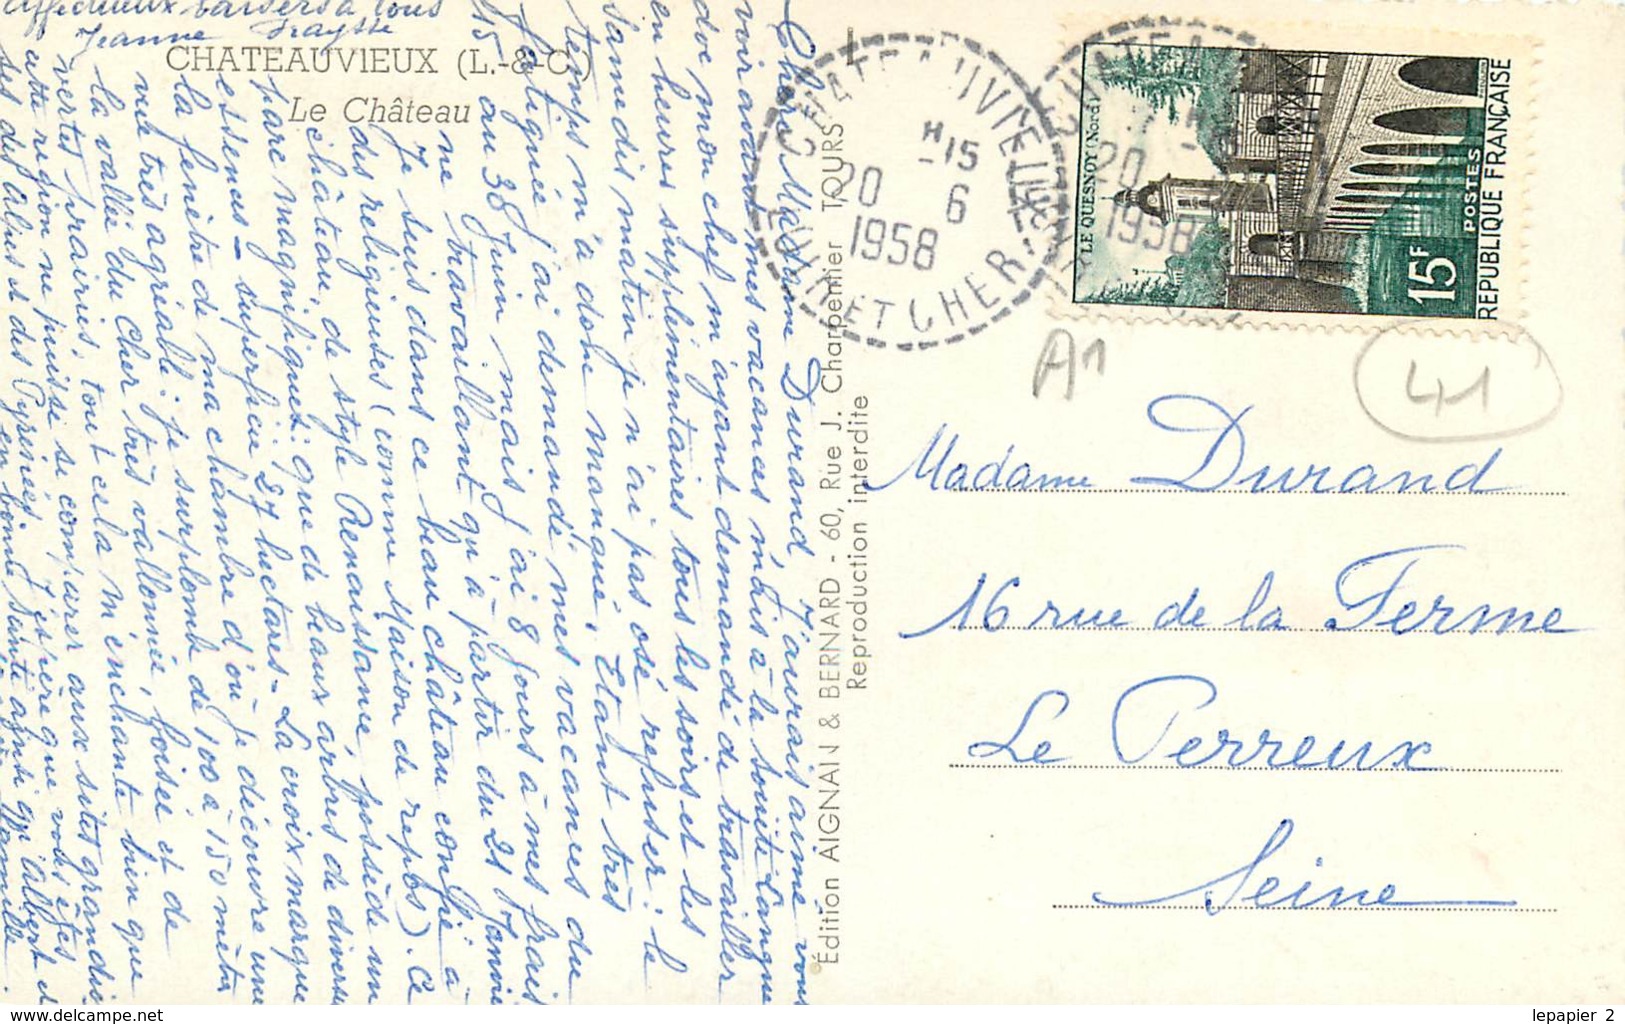 CHATEAUVIEUX (L.-&-C.)
Le Château
Chère Madame Durand, J'aurais aimé vous
voir avant mes vacances mais à la suite d'angine
mon chef m'ayant demandé de travailler
en heures supplémentaires tous les soirs et les
samedis matin je n'ai pas osé refuser : le
temps m'a donc manqué. Etant très
fatiguée j'ai demandé mes vacances du
15 au 30 juin mais j'ai 8 jours à mes frais
ne travaillant qu'à partir du 21 Janvier
Je suis dans ce beau château confié à
des religieuses (comme Maison de repos). Ce
château, de style Renaissance possède un
parc magnifique : que de beaux arbres de diverses
essences - superficie 27 hectares - La croix marque
la fenêtre de ma chambre d'où je découvre une
vue très agréable : je surplombe de 100 à 150 mètres
la vallée du Cher très vallonnée, boisée et de
vertes prairies, tout cela m'enchante bien que
cette région ne puisse se comparer aux sites grandioses
des Alpes et des Pyrénées. J'espère que vous êtes
en bonne santé ainsi qu'Albert et
famille.
Affectueux baisers à tous
Jeanne Fraysse
Édition AIGNAN & BERNARD - 60, Rue J. Charpentier TOURS
Reproduction interdite
CHATEAUVIEUX
H15
20 6
1958
LOIR ET CHER
20
1958
LE QUESNOY (Nord)
15F
POSTES
REPUBLIQUE FRANÇAISE
A1
41
Madame Durand
16 rue de la Ferme
Le Perreux
Seine
www.delcampe.net
lepapier_2